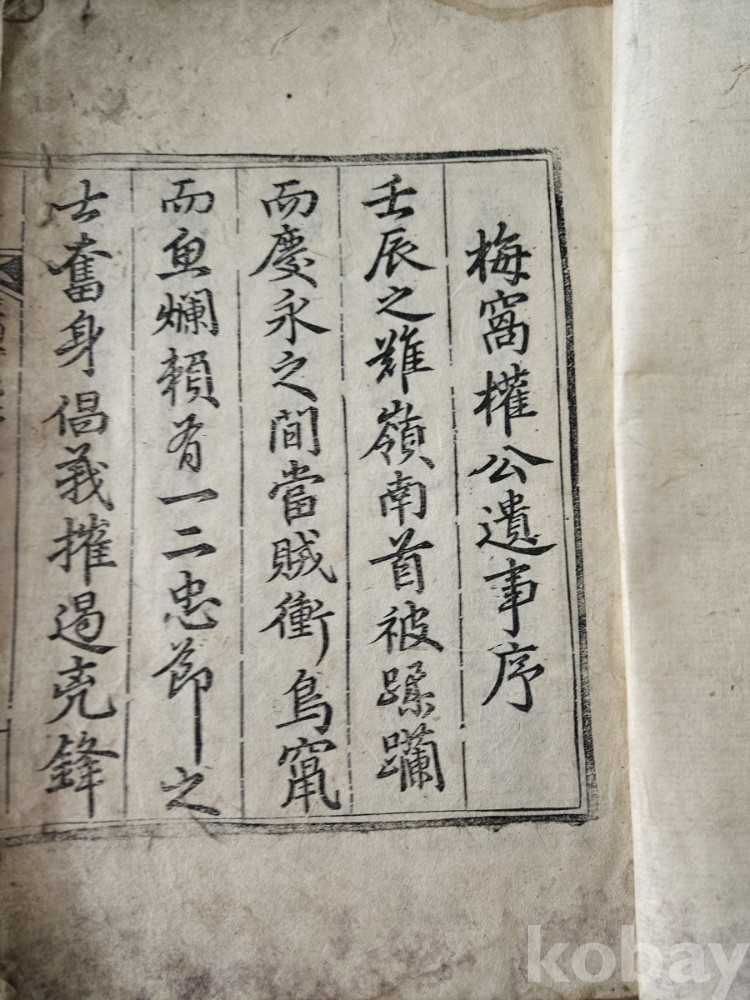 梅窩權公遺事序
壬辰之難嶺南首被蹂躪
而慶永之間當賊衝鳥竄
而魚爛賴有一二忠節之
士奮身倡義摧遏兇鋒
kobay